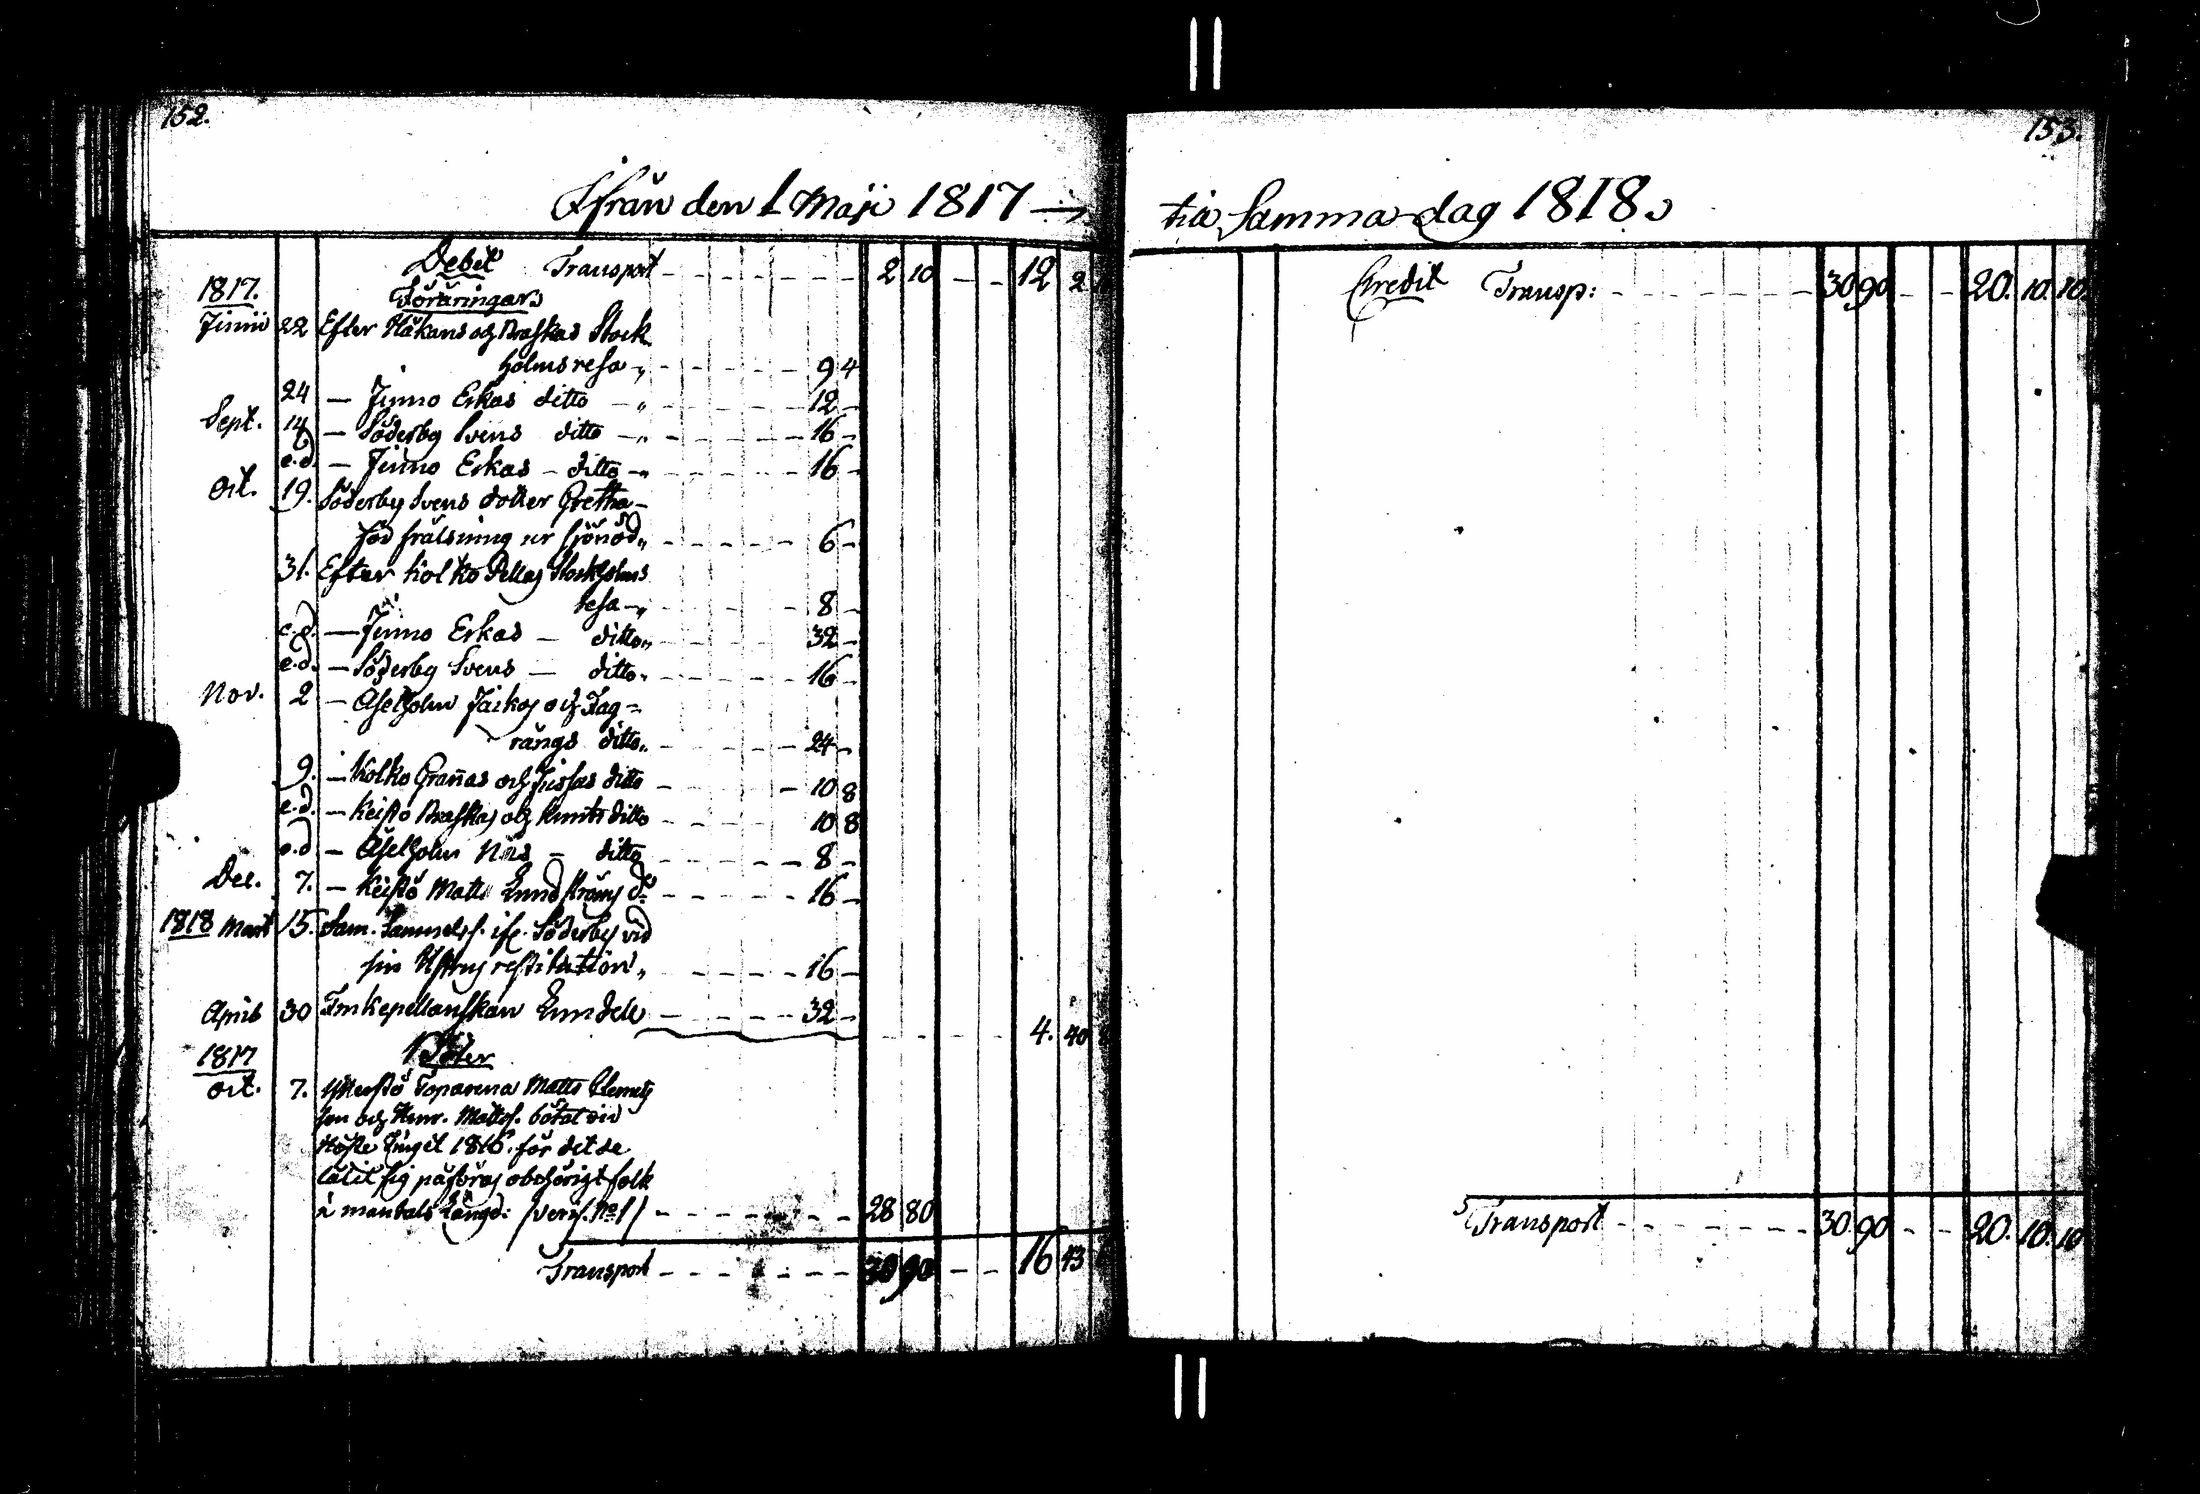 152.
Ifrån den 1 Maji 1817 —
Debet Transport 2 10 12 2
1817. Föräringar
Junii 22 Efter Håkans och Braskas Stock
holms resa 9 4
24 — Jumo Erkas ditto 12 —
Sept. 14 — Söderby Svens ditto 16 —
e.d. — Jumo Erkas — ditto 16 —
Oct. 19. Söderby Svens dotter Gretha
för frälsning ur sjönöd 6 —
31. Efter Kolko Pellas Stockholms
resa 8 —
e.d. — Jumo Erkas — ditto 32 —
e.d. — Söderby Svens — ditto 16 —
Nov. 2 — Aselholm Jäckas och Fag=
rängs ditto 24 —
9. — Kolko Grannas och Jussas ditto 10 8
e.d. — Keistö Braskas och Knuts ditto 10 8
e.d. — Aselholm Nils — ditto 8 —
Dec. 7. — Keistö Matts Lundströms do 16 —
1818 Mart 15. Sam. Samuelss. ifr. Söderby vid
sin restitution 16 —
April 30 Enkepellanskan Lundele 32 —
4. 40
1817 Böter
Oct. 7. Ytterstö Toparena Matts Clemets
son och Henr. Mattss. bötat vid
Höste Tinget 1816. för det de
låtit sig påföras obehörigt folk
i mantals Längd: (verif. No 1) 28 80
Transport 30 90 16 43
153.
till Samma dag 1818.
Credit Transp: 30 90 20. 10. 10.
Transport 30 90 20. 10. 10